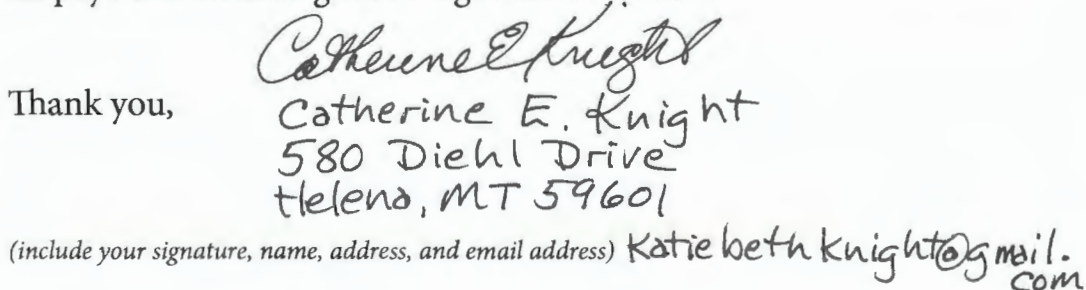 Catherine E Knight
Thank you,
Catherine E. Knight
580 Diehl Drive
Helena, MT 59601
(include your signature, name, address, and email address) Katiebethknight@gmail.
com